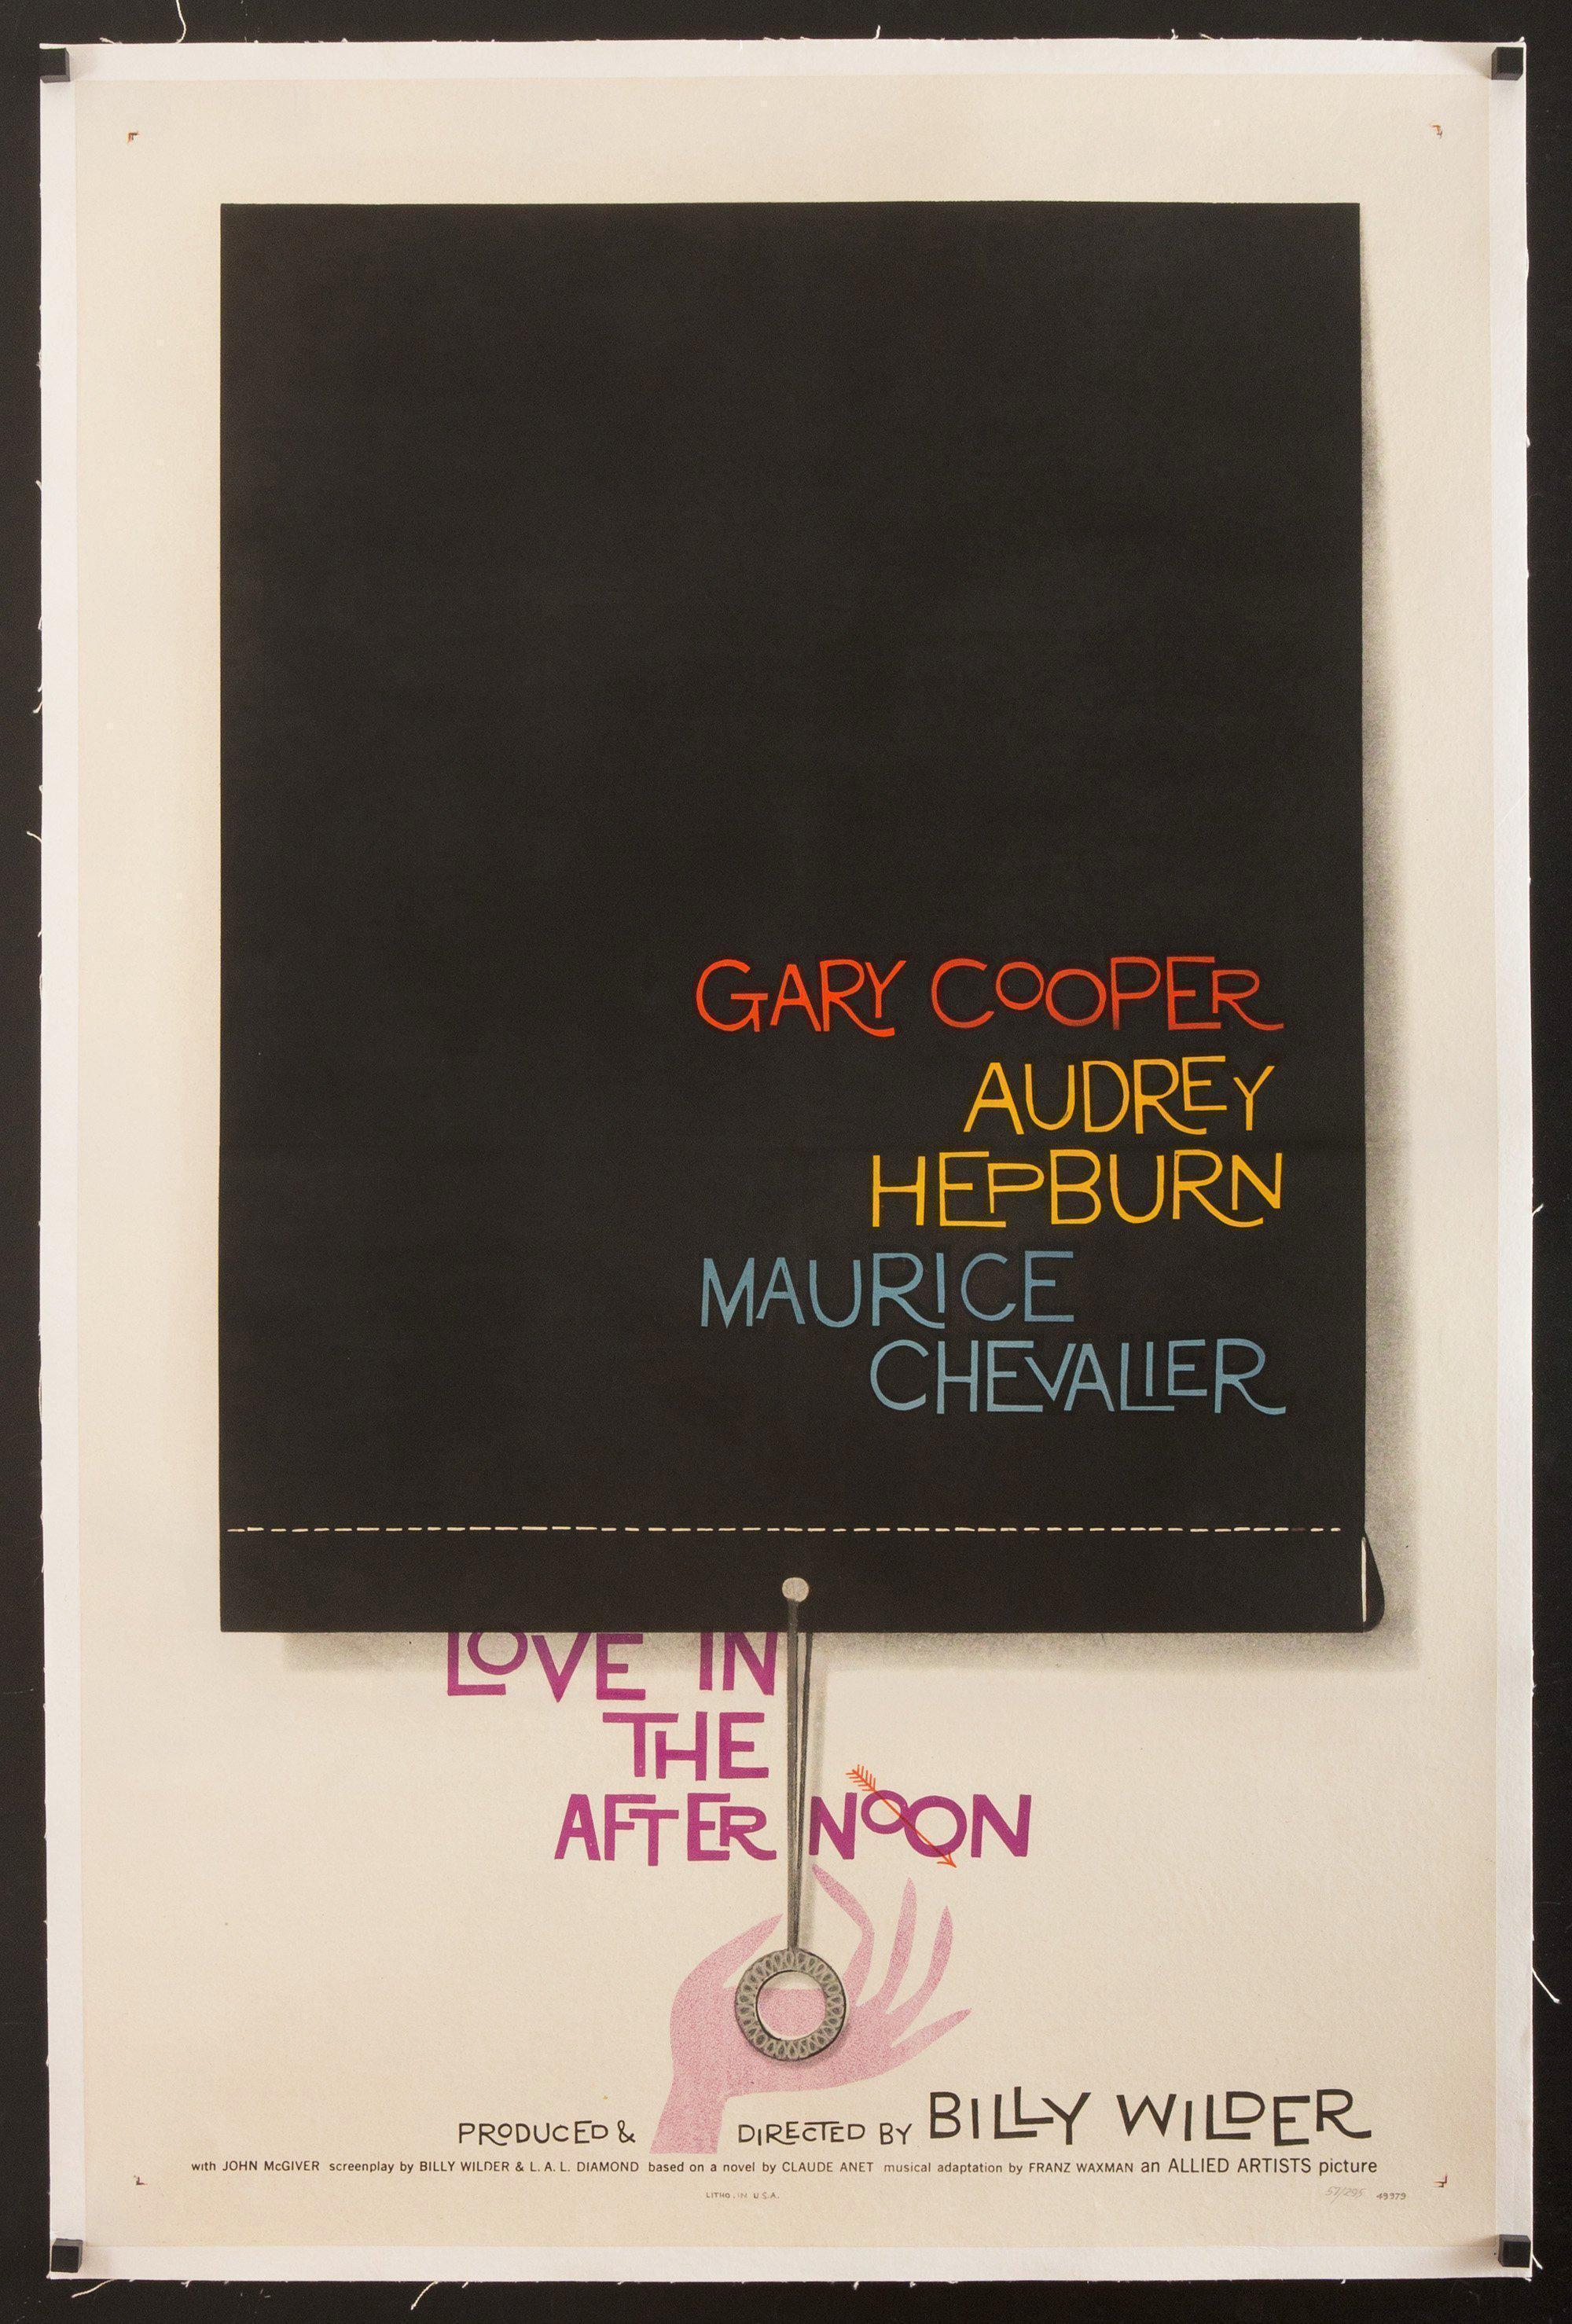 GARY COOPER
AUDREY
HEPBURN
MAURICE
CHEVALIER
LOVE IN
THE
AFTERNOON
PRODUCED & DIRECTED BY BILLY WILDER
with JOHN McGIVER screenplay by BILLY WILDER & I. A. L. DIAMOND based on a novel by CLAUDE ANET musical adaptation by FRANZ WAXMAN an ALLIED ARTISTS picture
LITHO. IN U.S.A.
57/295 49979